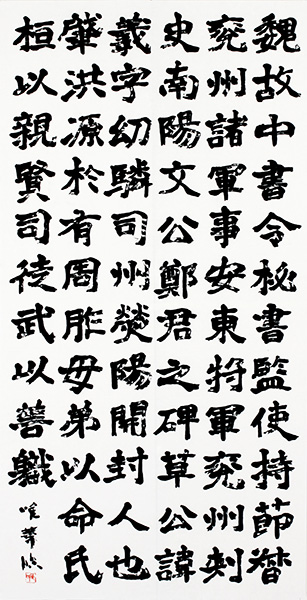 魏故中書令秘書監使持節督
兗州諸軍事安東将軍兗州刺
史南陽文公鄭君之碑草公諱
羲字幼驎司州熒陽開封人也
肇洪源於有周胙母弟以命氏
桓以親賢司徒武以善職